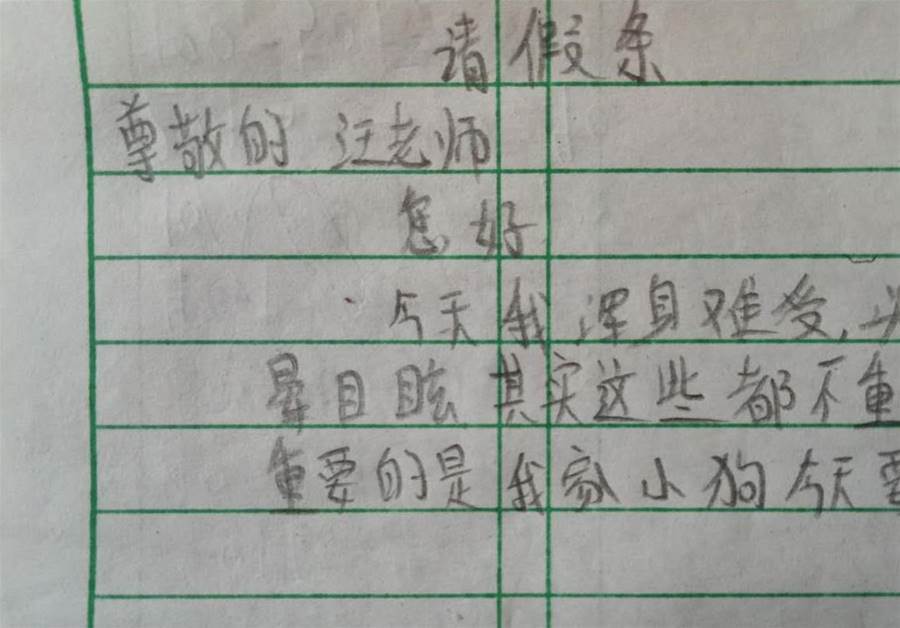 请假条
尊敬的 汪老师
您好
今天我浑身难受,头
晕目眩其实这些都不重
重要的是我家小狗今天要